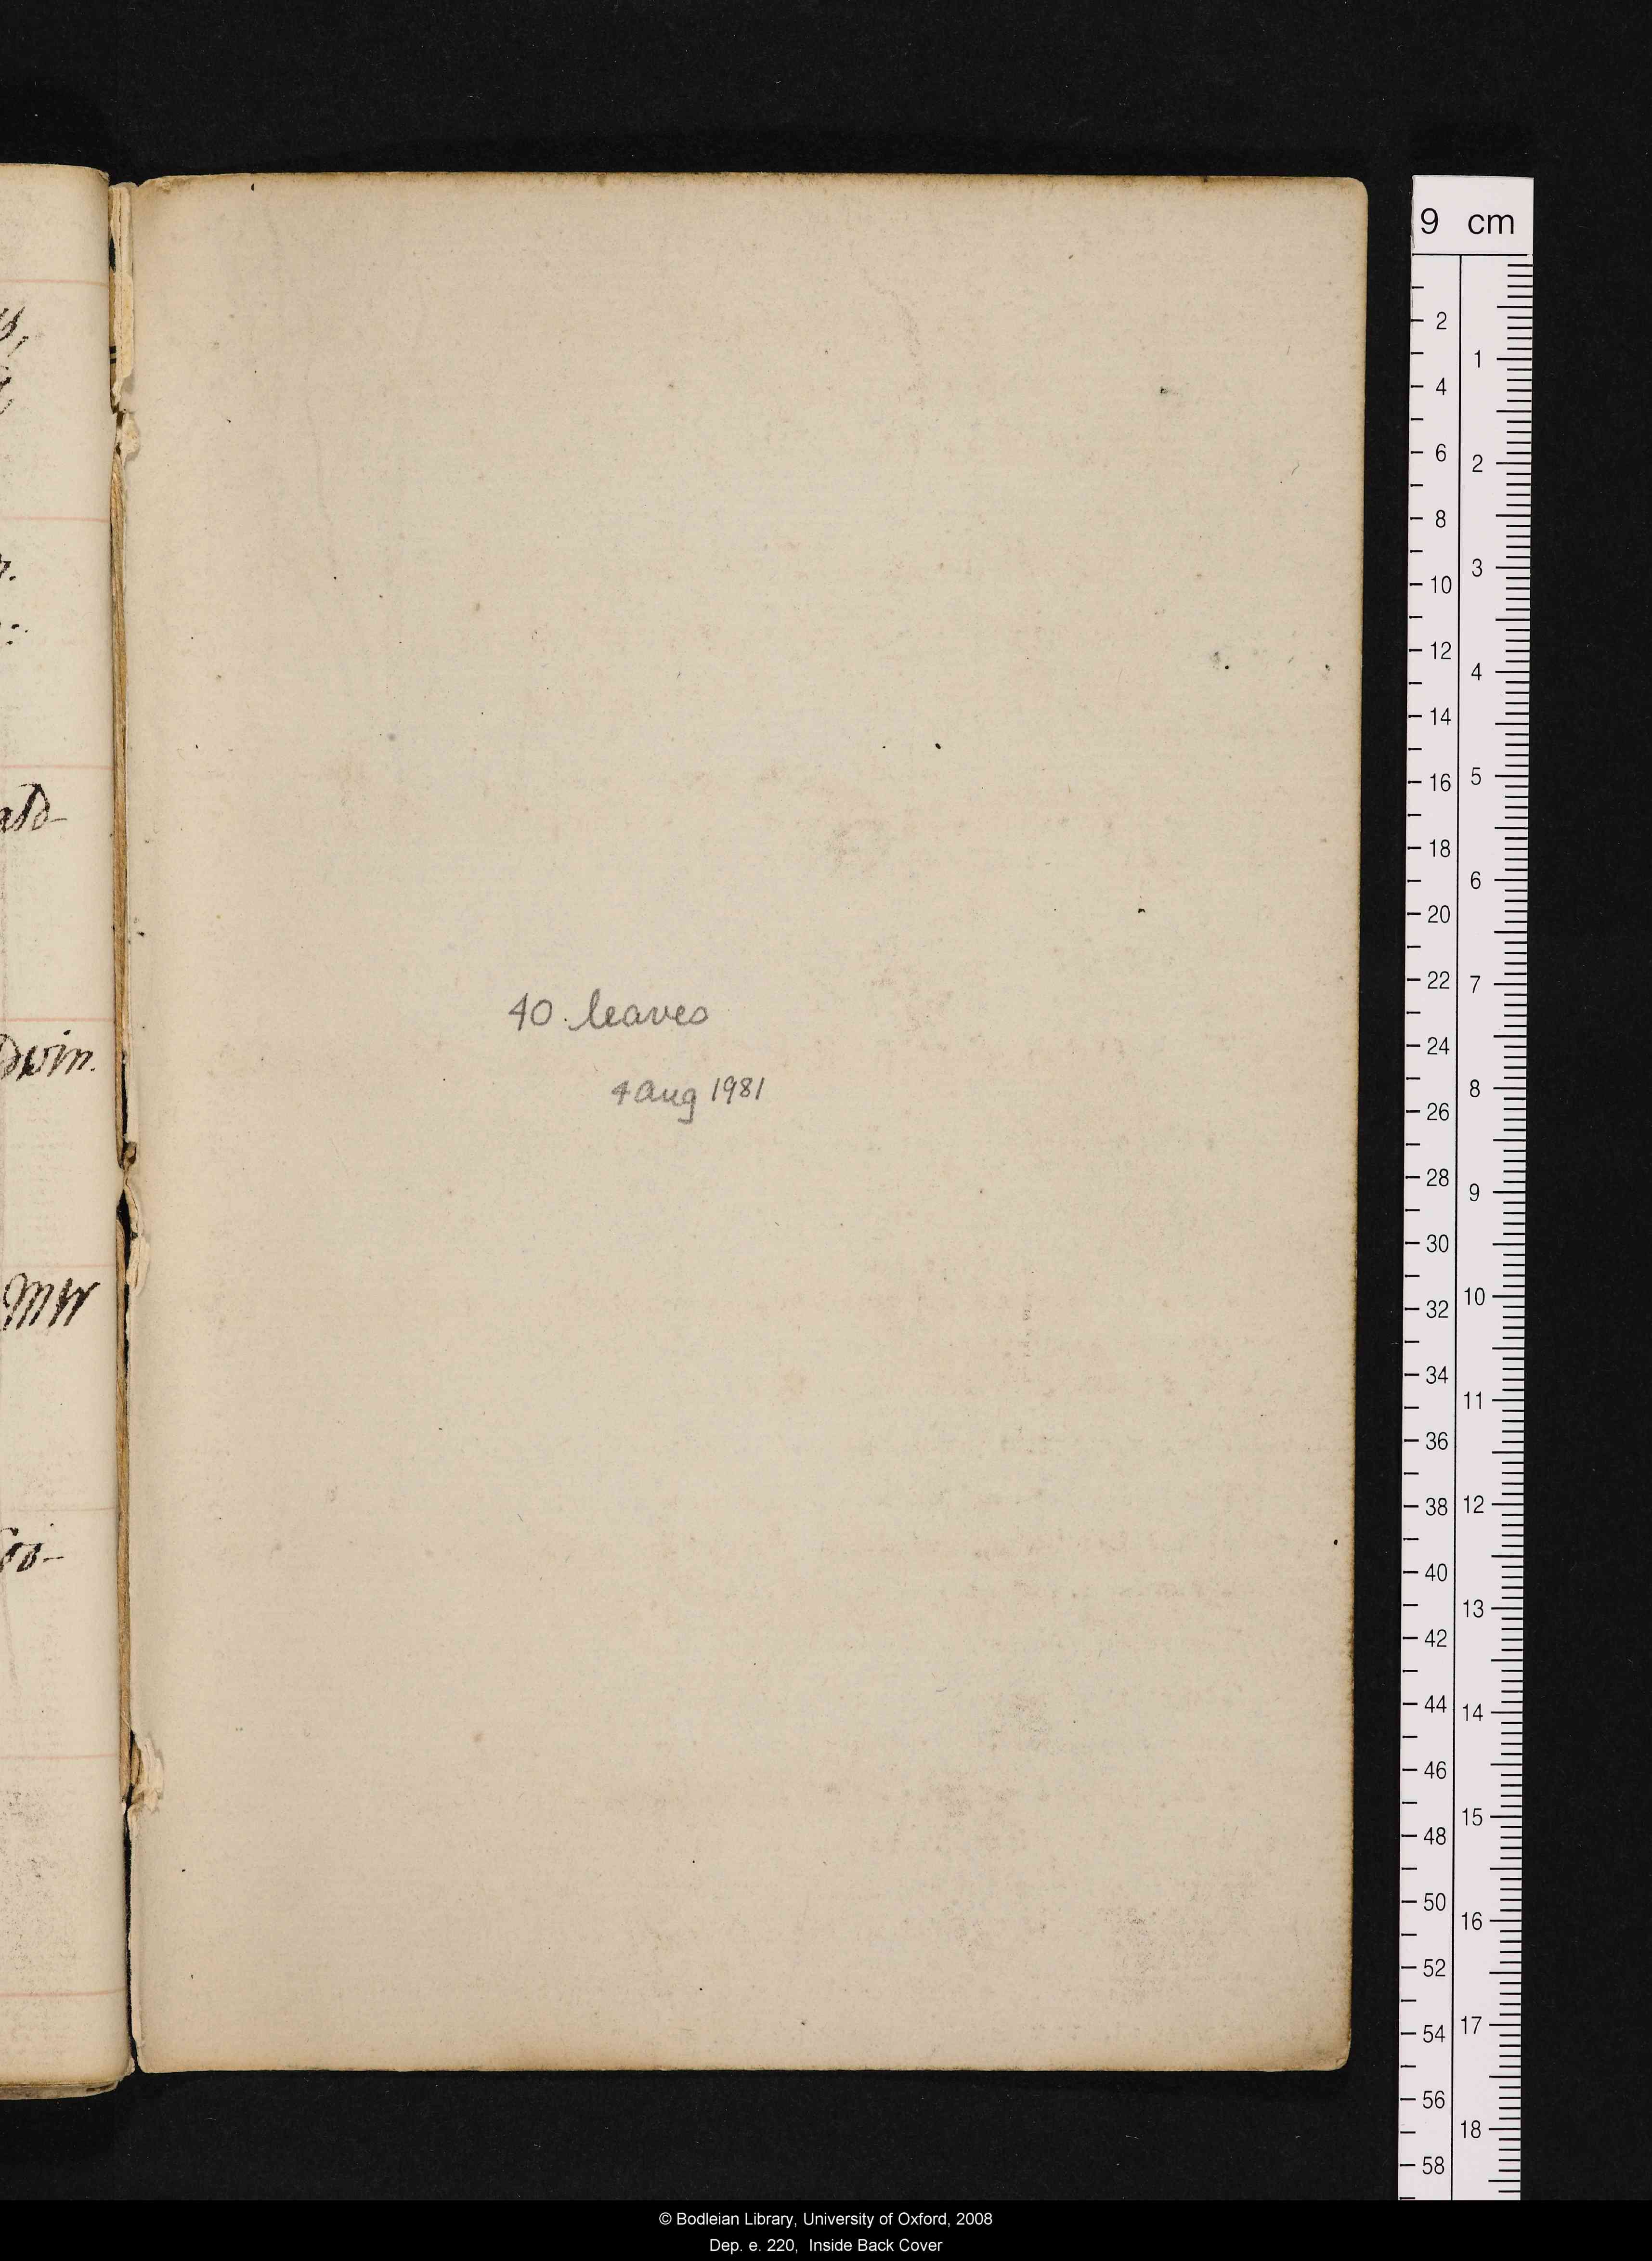 40 leaves
4 Aug 1981
dwin.
MW
9 cm
2
4
6
8
10
12
14
16
18
20
22
24
26
28
30
32
34
36
38
40
42
44
46
48
50
52
54
56
58
1
2
3
4
5
6
7
8
9
10
11
12
13
14
15
16
17
18
© Bodleian Library, University of Oxford, 2008
Dep. e. 220, Inside Back Cover